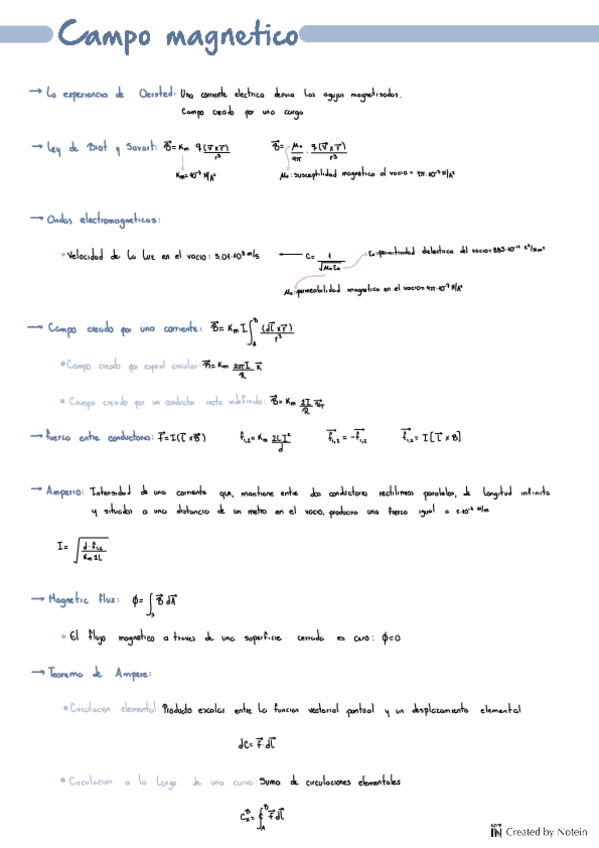 Campo magnetico
→ La experiencia de Oersted: Una corriente electrica desvia las agujas magnetizadas.
Campo creado por una carga
→ Ley de Biot y Savart: B⃗ = Km q(v⃗×r⃗)/r³    B⃗ = μ₀/4π · q(v⃗×r⃗)/r³
Km = 10⁻⁷ N/A²    μ₀: susceptilidad magnetica al vacio = 4π·10⁻⁷ N/A²
→ Ondas electromagneticas:
• Velocidad de la luz en el vacio: 3.01·10⁸ m/s ← c = 1/√μ₀ε₀    ε₀: permitividad dielectrica del vacio =
μ₀: permeabilidad magnetica en el vacio = 4π·10⁻⁷ N/A²
→ Campo creado por una corriente: B⃗ = Km I ∫_A^B (dl⃗×r⃗)/r³
• Campo creado por espiral circular: B⃗ = Km 2πI/R
• Campo creado por un conductor recto indefinido: B⃗ = Km 2I/R
→ Fuerza entre conductores: F⃗ = I(l⃗×B⃗)    f₁,₂ = Km 2LI²/d    f⃗₁,₂ = -f⃗₁,₂    f⃗₁,₂ = I[l⃗×B]
→ Amperio: Intensidad de una corriente que, mantiene entre dos conductores rectilineos paralelos, de longitud infinita
y situados a una distancia de un metro en el vacio, produciria una fuerza igual a 2·10⁻⁷ N/m
I = √(d·f₁,₂ / Km 2L)
→ Magnetic flux: ϕ = ∫_S B⃗ dA⃗
• El flujo magnetico a traves de una superficie cerrada es cero: ϕ=0
→ Teorema de Ampere:
• Circulacion elemental: Producto escalar entre la funcion vectorial puntual y un desplazamiento elemental
dC = F⃗·dl⃗
• Circulacion a lo largo de una curva: Suma de circulaciones elementales
C_A^B = ∮_A^B F⃗ dl⃗
NOTE IN Created by Notein